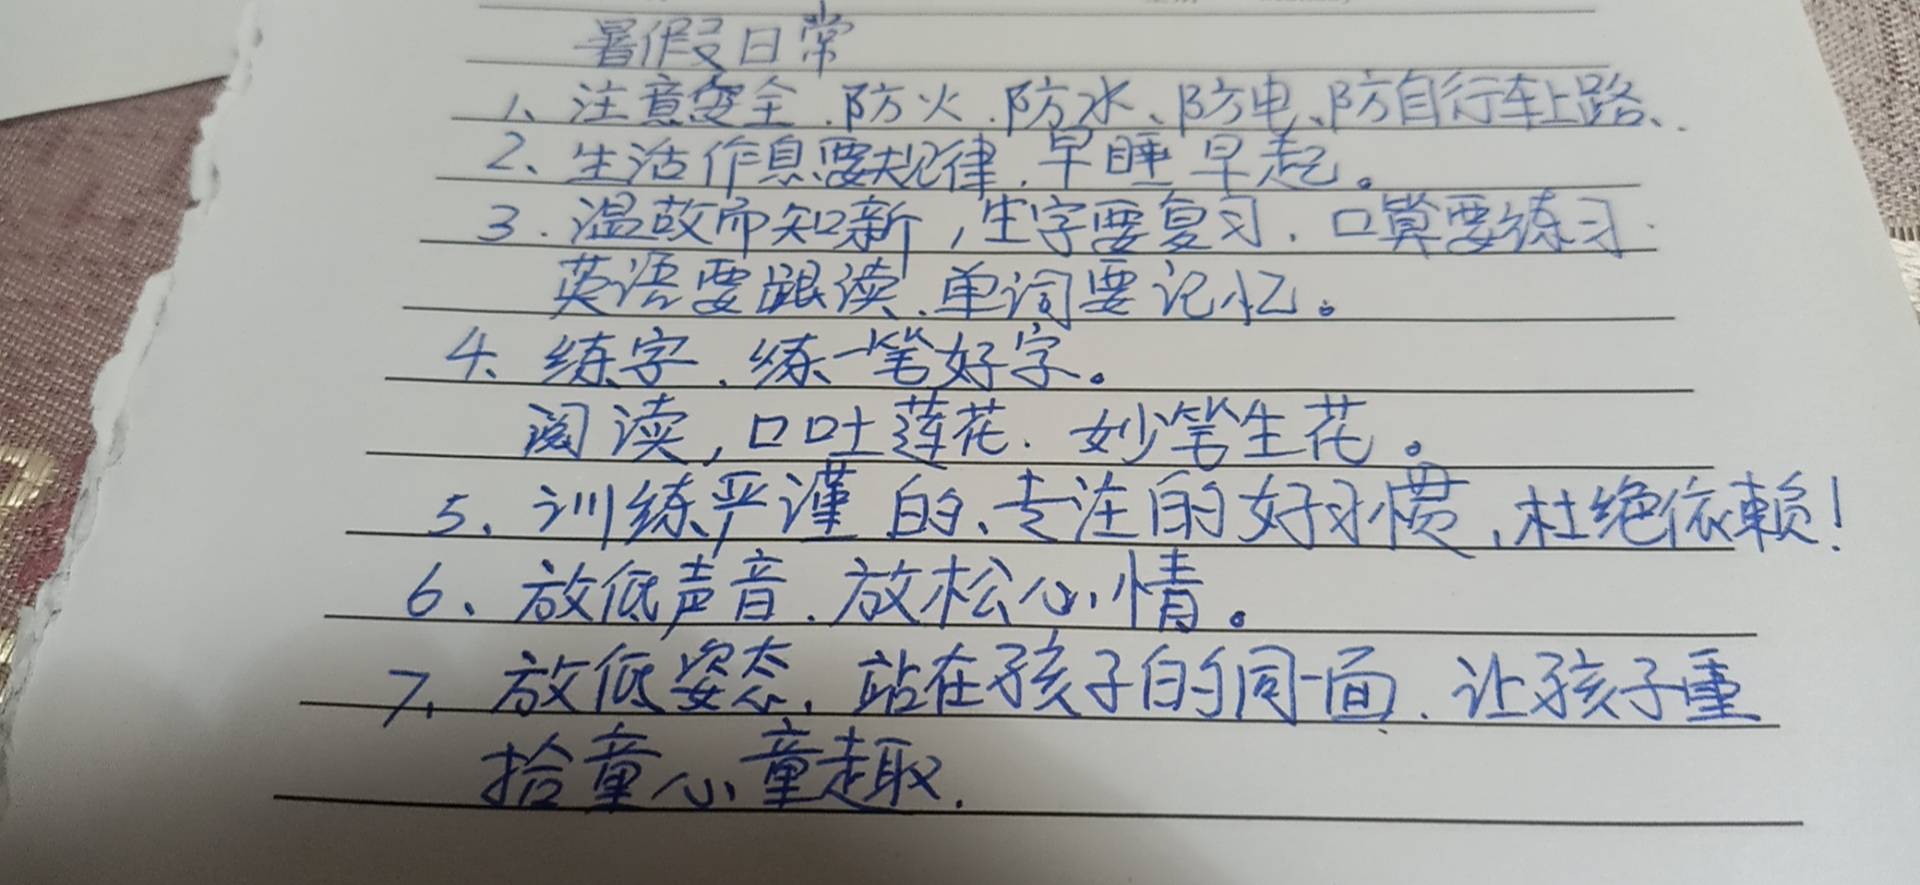 暑假日常
1、注意安全.防火.防水、防电、防自行车上路、.
2、生活作息要规律.早睡早起。
3.温故而知新,生字要复习.口算要练习.
英语要跟读.单词要记忆。
4、练字.练一笔好字。
阅读,口吐莲花.妙笔生花。
5、训练严谨的、专注的好习惯,杜绝依赖!
6、放低声音.放松心情。
7、放低姿态.站在孩子的同一面.让孩子重
拾童心童趣.